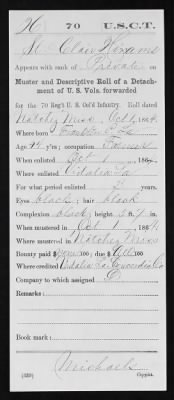 H 70 U.S.C.T.
St Clair Hiram
Appears with rank of Private on
Muster and Descriptive Roll of a Detachment
of U. S. Vols. forwarded
for the 70 Reg't U. S. Col'd Infantry. Roll dated
Natchez Miss Oct 1, 1864.
Where born Franklin Co La
Age y'rs; occupation Farmer
When enlisted Oct 1, 1864
Where enlisted Vidalia La
For what period enlisted 3 years.
Eyes black; hair black
Complexion black; height 5 ft. 7 in.
When mustered in Oct 1, 1864
Where mustered in Natchez Miss
Bounty paid $ ; due $
Where credited Vidalia La Concordia Co
Company to which assigned
Remarks:
Book mark:
Michael
(339) Copyist.